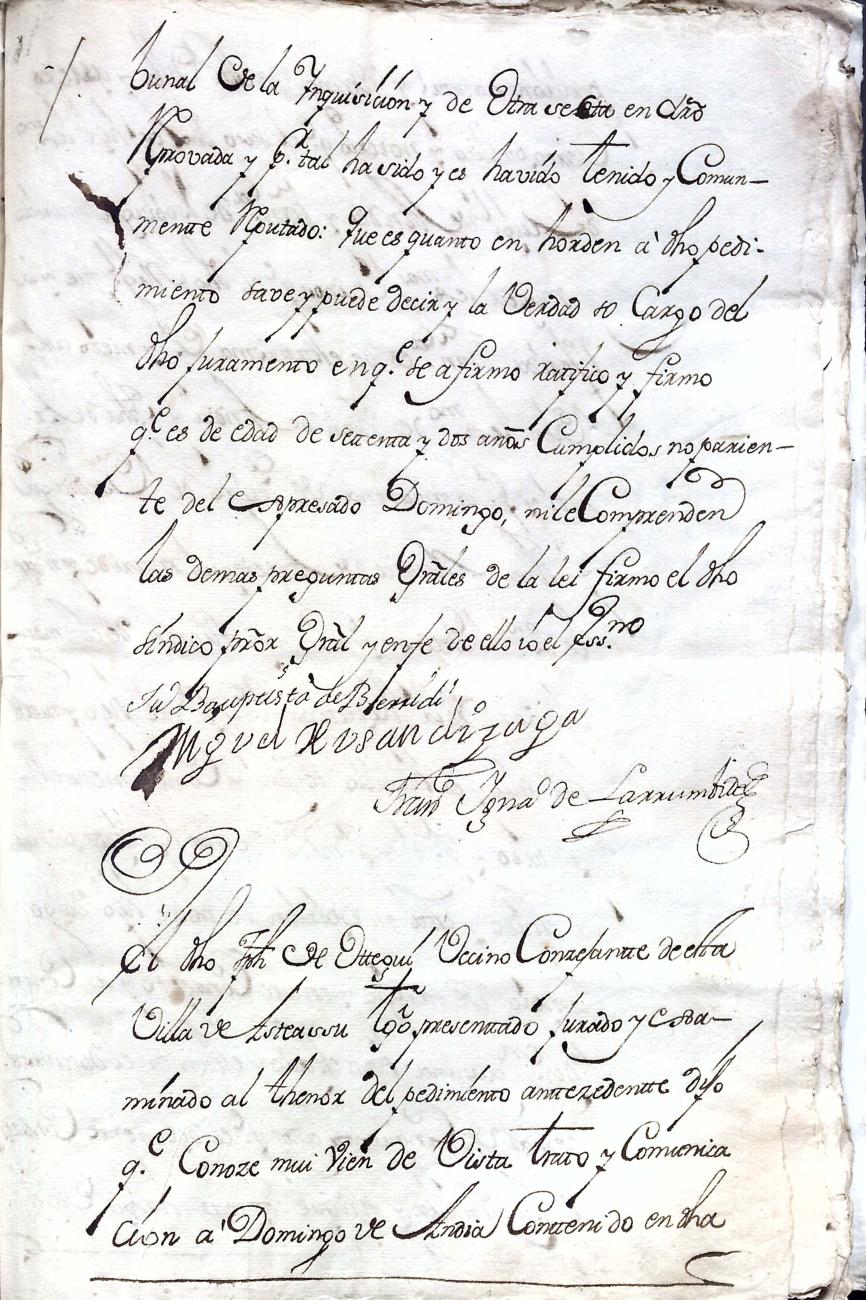 bunal de la Inquisición y de otra secta en dró
Reprovada y pr. tal ha sido y es havido tenido y Comun-
mente Reputado: que es quanto en horden à dho pedi-
miento save y puede decir y la Verdad so Cargo del
dho Juramento en qe. se afirmo ratifico y firmo
qe. es de edad de setenta y dos años Cumplidos no parien-
te del expresado Domingo, ni le Comprenden
las demas preguntas Grales de la lei firmo el dho
síndico prór Grâl y en fe de ello io el Essno.
Ju Bauptista de Berridi
Miguel de Vsandizaga
Franco Ignao de Larrumbide
El dho Jph de Otegui Vecino Conzejante de esta
Villa de Asteassu tgo presenttado jurado y exsa-
minado al thenor del pedimiento anttezedentte dijo
qe. Conoze mui vien de Vista trato y Comunica
cíon a' Domingo de Andia Conttenido en dha